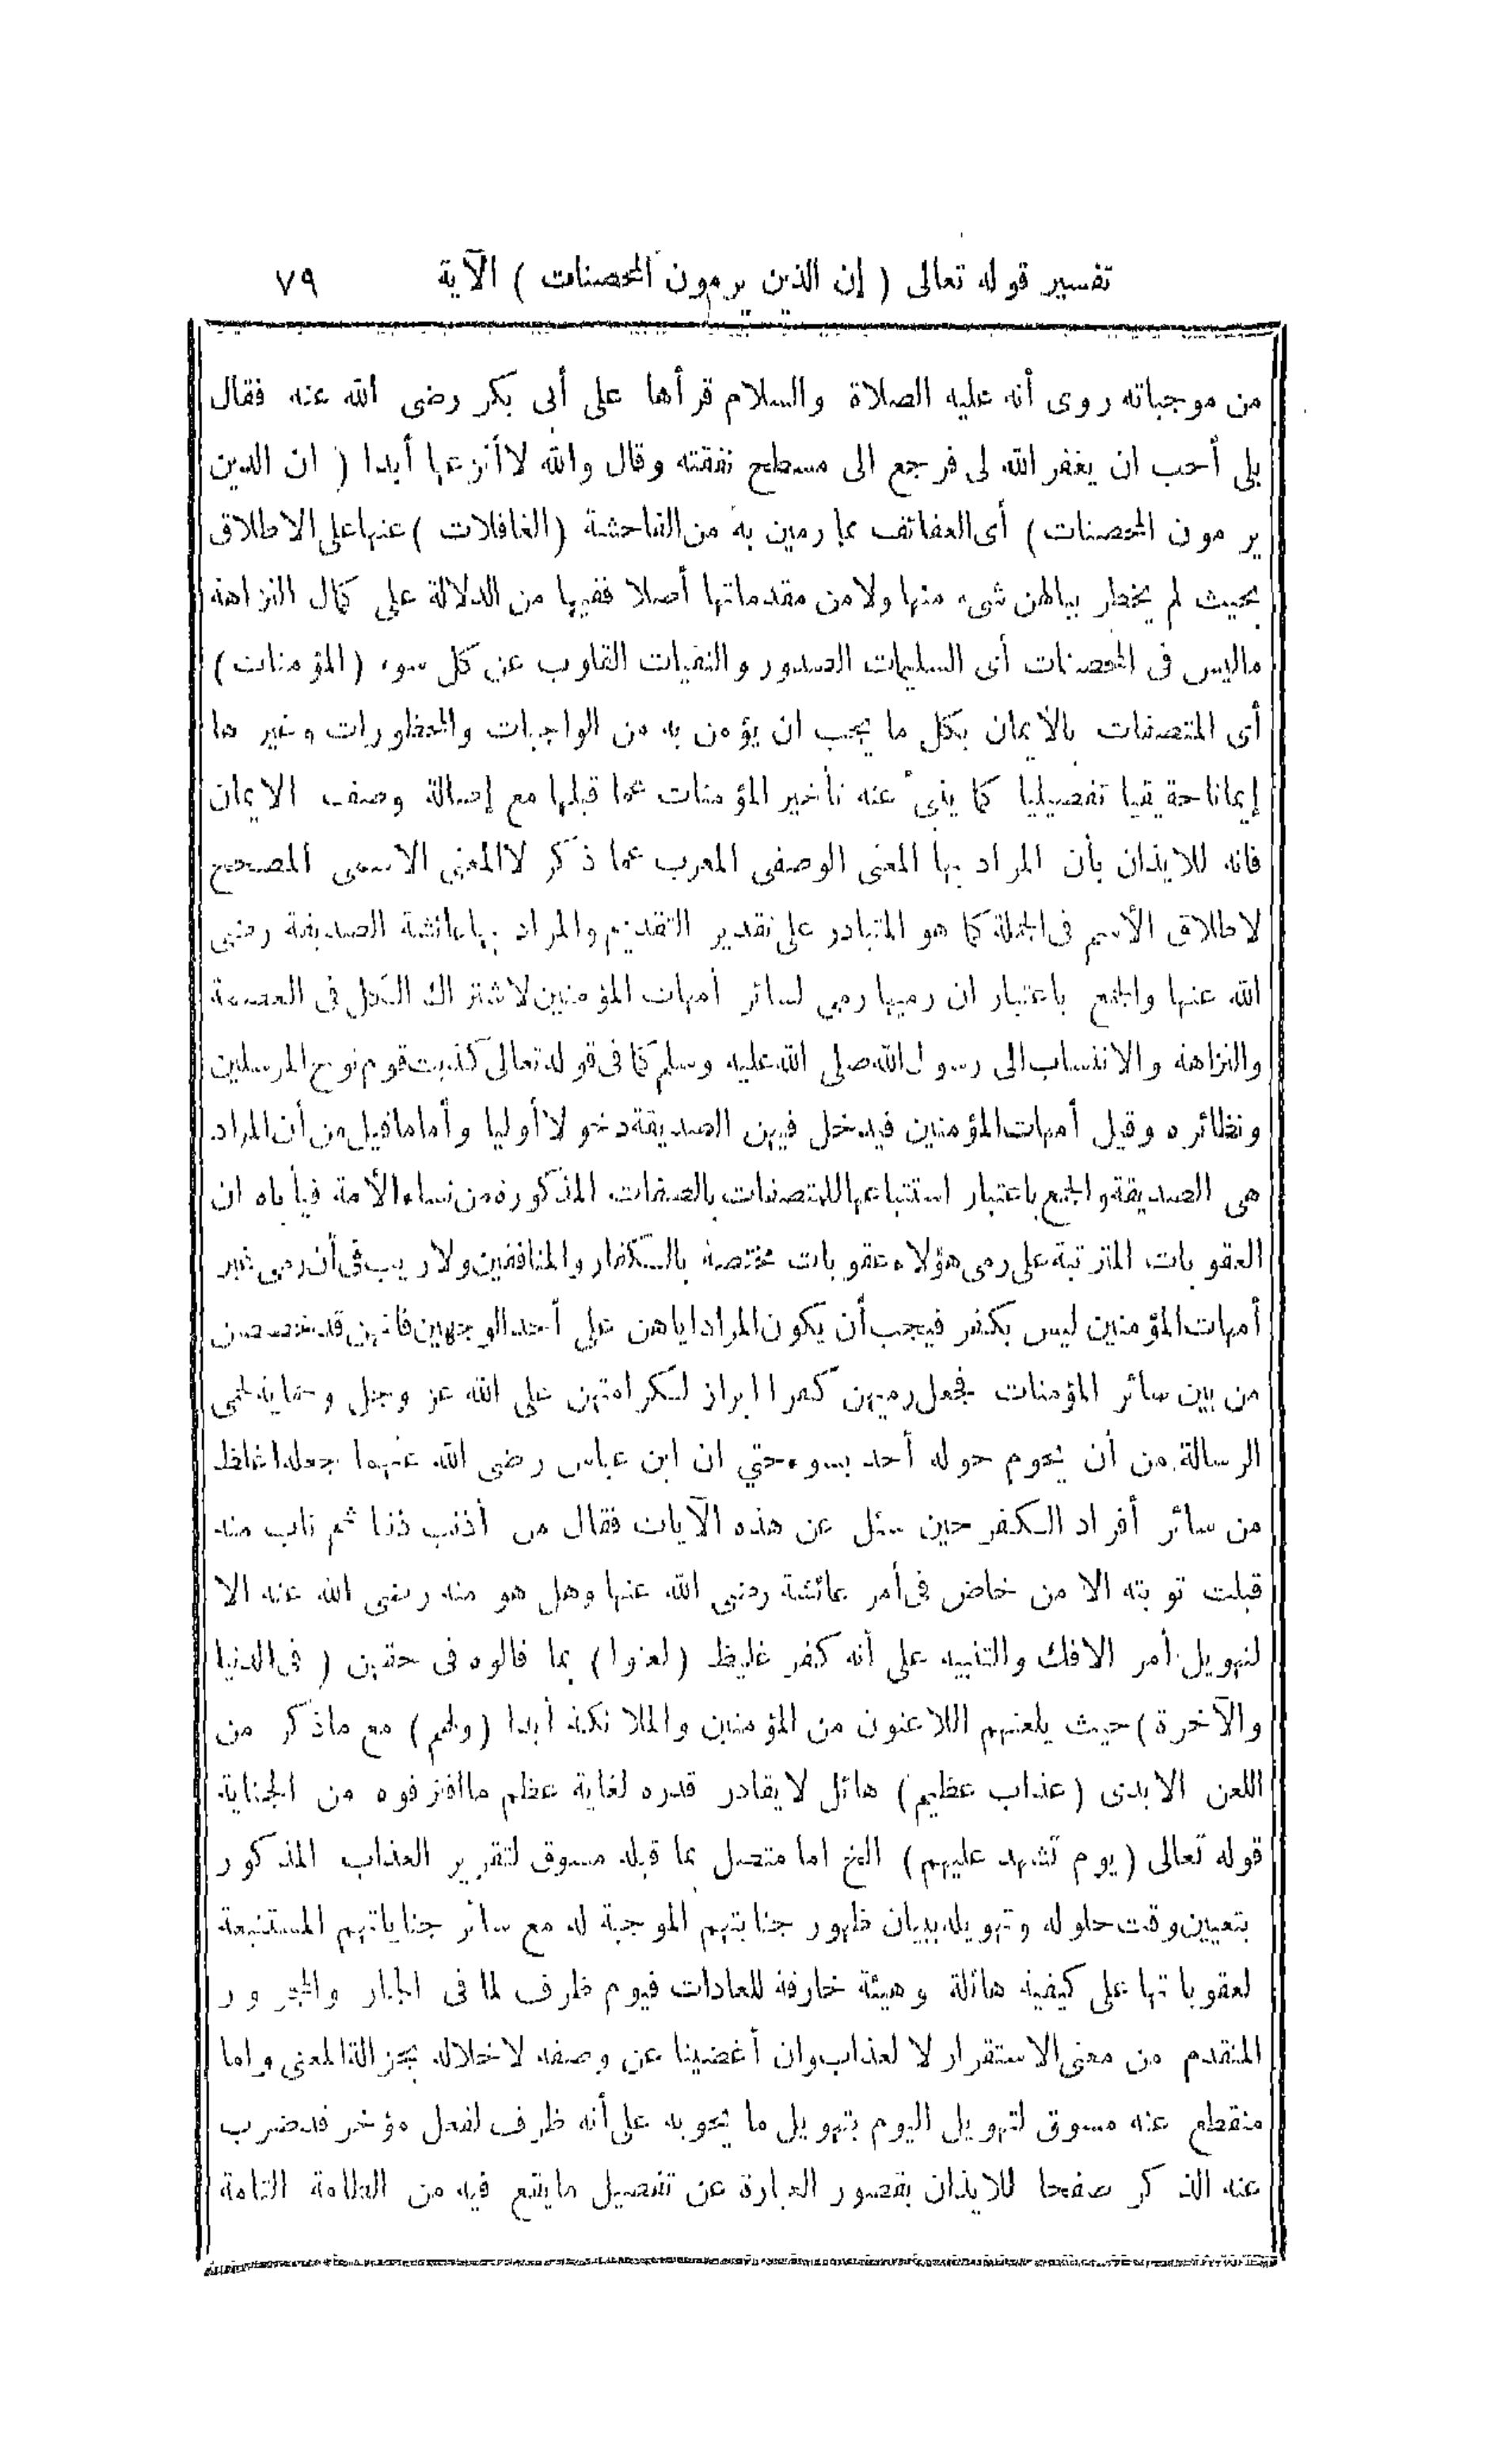 تفسير قوله تعالى ( إن الذين يرمون المحصنات ) الآية ٧٩
من موجباته روى أنه عليه الصلاة والسلام قرأها على أبى بكر رضى الله عنه فقال
بلى أحب ان يغفر الله لى فرجع الى مسطح نفقته وقال والله لا أنزعها أبدا ( ان الدين
يرمون المحصنات ) أى العفائف عما رمين به من الفاحشة (الغافلات ) عنها على الاطلاق
بحيث لم يخطر ببالهن شىء منها ولا من مقدماتها أصلا ففيها من الدلالة على كمال النزاهة
ماليس فى المحصنات أى السليمات الصدور والنقيات القلوب عن كل سوء (المؤمنات )
أى المتصفات بالايمان بكل ما يجب ان يؤمن به من الواجبات والمحظورات وغيرها
إيمانا حقيقيا تفصيليا كما ينبئ عنه تأخير المؤمنات عما قبلها مع إصالة وصف الايمان
فانه للايذان بأن المراد بها المعنى الوصفى المعرب عما ذكر لا المعنى الاسمى المصحح
لاطلاق الأسم فى الجملة كما هو المتبادر على تقدير التقديم والمراد بها عائشة الصديقة رضى
الله عنها والجمع باعتبار ان رميها رمى لسائر أمهات المؤمنين لاشتراك الكل فى العصمة
والنزاهة والانتساب الى رسول الله صلى الله عليه وسلم كما فى قوله تعالى كذبت قوم نوح المرسلين
ونظائره وقيل أمهات المؤمنين فيدخل فيهن الصديقة دخولا أوليا وأما ما قيل من أن المراد
هى الصديقة والجمع باعتبار استتباعها للمتصفات بالصفات المذكورة من نساء الأمة فيأباه ان
العقوبات المترتبة على رمى هؤلاء عقوبات مختصة بالكفار والمنافقين ولا ريب فى أن رمى غير
أمهات المؤمنين ليس بكفر فيجب أن يكون المراد اياهن على أحد الوجهين فانهن قد خصصن
من بين سائر المؤمنات فجعل رميهن كفرا ابراز لكرامتهن على الله عز وجل وحماية لحمى
الرسالة من أن يحوم حوله أحد بسوء حتي ان ابن عباس رضى الله عنهما جعله اغلظ
من سائر أفراد الكفر حين سئل عن هذه الآيات فقال من أذنب ذنبا ثم تاب منه
قبلت توبته الا من خاض فى أمر عائشة رضى الله عنها وهل هو منه رضى الله عنه الا
لتهويل أمر الافك والتنبيه على أنه كفر غليظ (لعنوا ) بما قالوه فى حقهن ( فى الدنيا
والآخرة ) حيث يلعنهم اللاعنون من المؤمنين والملائكة أبدا (ولهم ) مع ماذكر من
اللعن الابدى (عذاب عظيم ) هائل لا يقادر قدره لغاية عظم ما اقترفوه من الجناية
قوله تعالى (يوم تشهد عليهم ) الخ اما متصل بما قبله مسوق لتقرير العذاب المذكور
بتعيين وقت حلوله وتهويله ببيان ظهور جنايتهم الموجبة له مع سائر جناياتهم المستتبعة
لعقوباتها على كيفية هائلة وهيئة خارقة للعادات فيوم ظرف لما فى الجار والمجرور
المتقدم من معنى الاستقرار لا لعذاب وان أغضينا عن وصفه لاخلاله بجزالة المعنى واما
منقطع عنه مسوق لتهويل اليوم بتهويل ما يحويه على أنه ظرف لفعل مؤخر قد ضرب
عنه الذكر صفحا للايذان بقصور العبارة عن تفصيل مايقع فيه من الطامة التامة